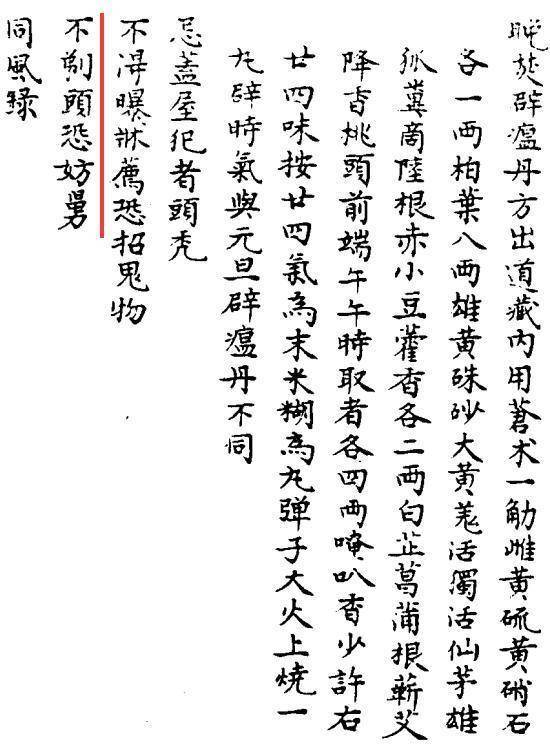 晚焚辟瘟丹方出道藏內用蒼术一觔雌黃硫黃硝石
各一兩柏葉八兩雄黃硃砂大黃羗活獨活仙茅雄
狐糞啇陸根赤小豆藿香各二兩白芷菖蒲根蘄艾
降香桃頭前端午午時取者各四兩唵叭香少許右
廿四味按廿四氣為末米糊為丸弹子大火上燒一
丸辟時氣與元旦辟瘟丹不同
忌蓋屋犯者頭禿
不淂曝牀薦恐招鬼物
不剃頭恐妨舅
同風錄